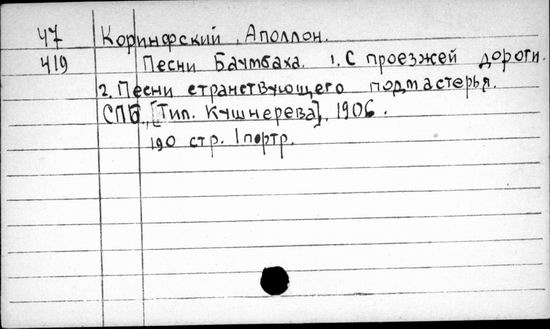 47 Коринфский, Аполлон.
419 Песни Баумбаха. 1. С проезжей дороги.
2. Песни странствующего подмастерья.
СПБ., [Тип. Кушнерева], 1906.
190 стр. 1 портр.